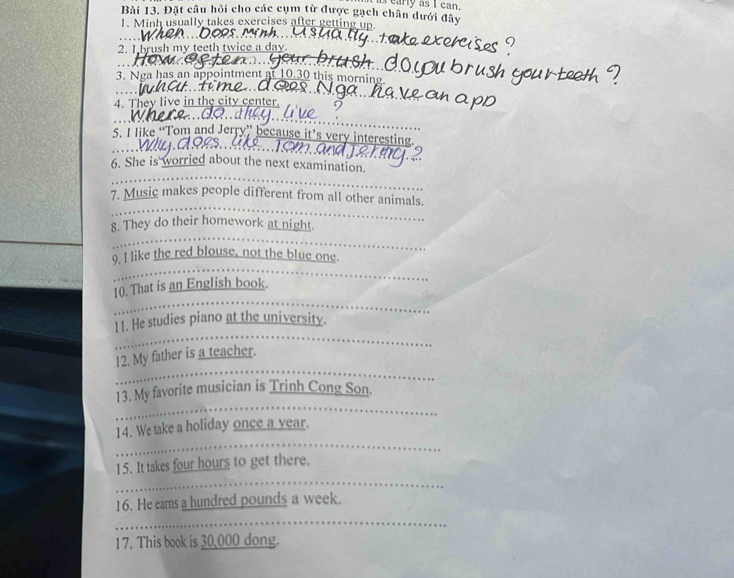 as early as I can.
Bài 13. Đặt câu hỏi cho các cụm từ được gạch chân dưới đây
1. Minh usually takes exercises after getting up.
When Does Minh Usually take exercises?
2. I brush my teeth twice a day.
How often your brush do you brush your teeth?
3. Nga has an appointment at 10.30 this morning.
What time does Nga have an app
4. They live in the city center.
Where do they live?
5. I like “Tom and Jerry” because it's very interesting.
Why does like Tom and Jerry?
6. She is worried about the next examination.
7. Music makes people different from all other animals.
8. They do their homework at night.
9. I like the red blouse, not the blue one.
10. That is an English book.
11. He studies piano at the university.
12. My father is a teacher.
13. My favorite musician is Trinh Cong Son.
14. We take a holiday once a year.
15. It takes four hours to get there.
16. He earns a hundred pounds a week.
17. This book is 30,000 dong.